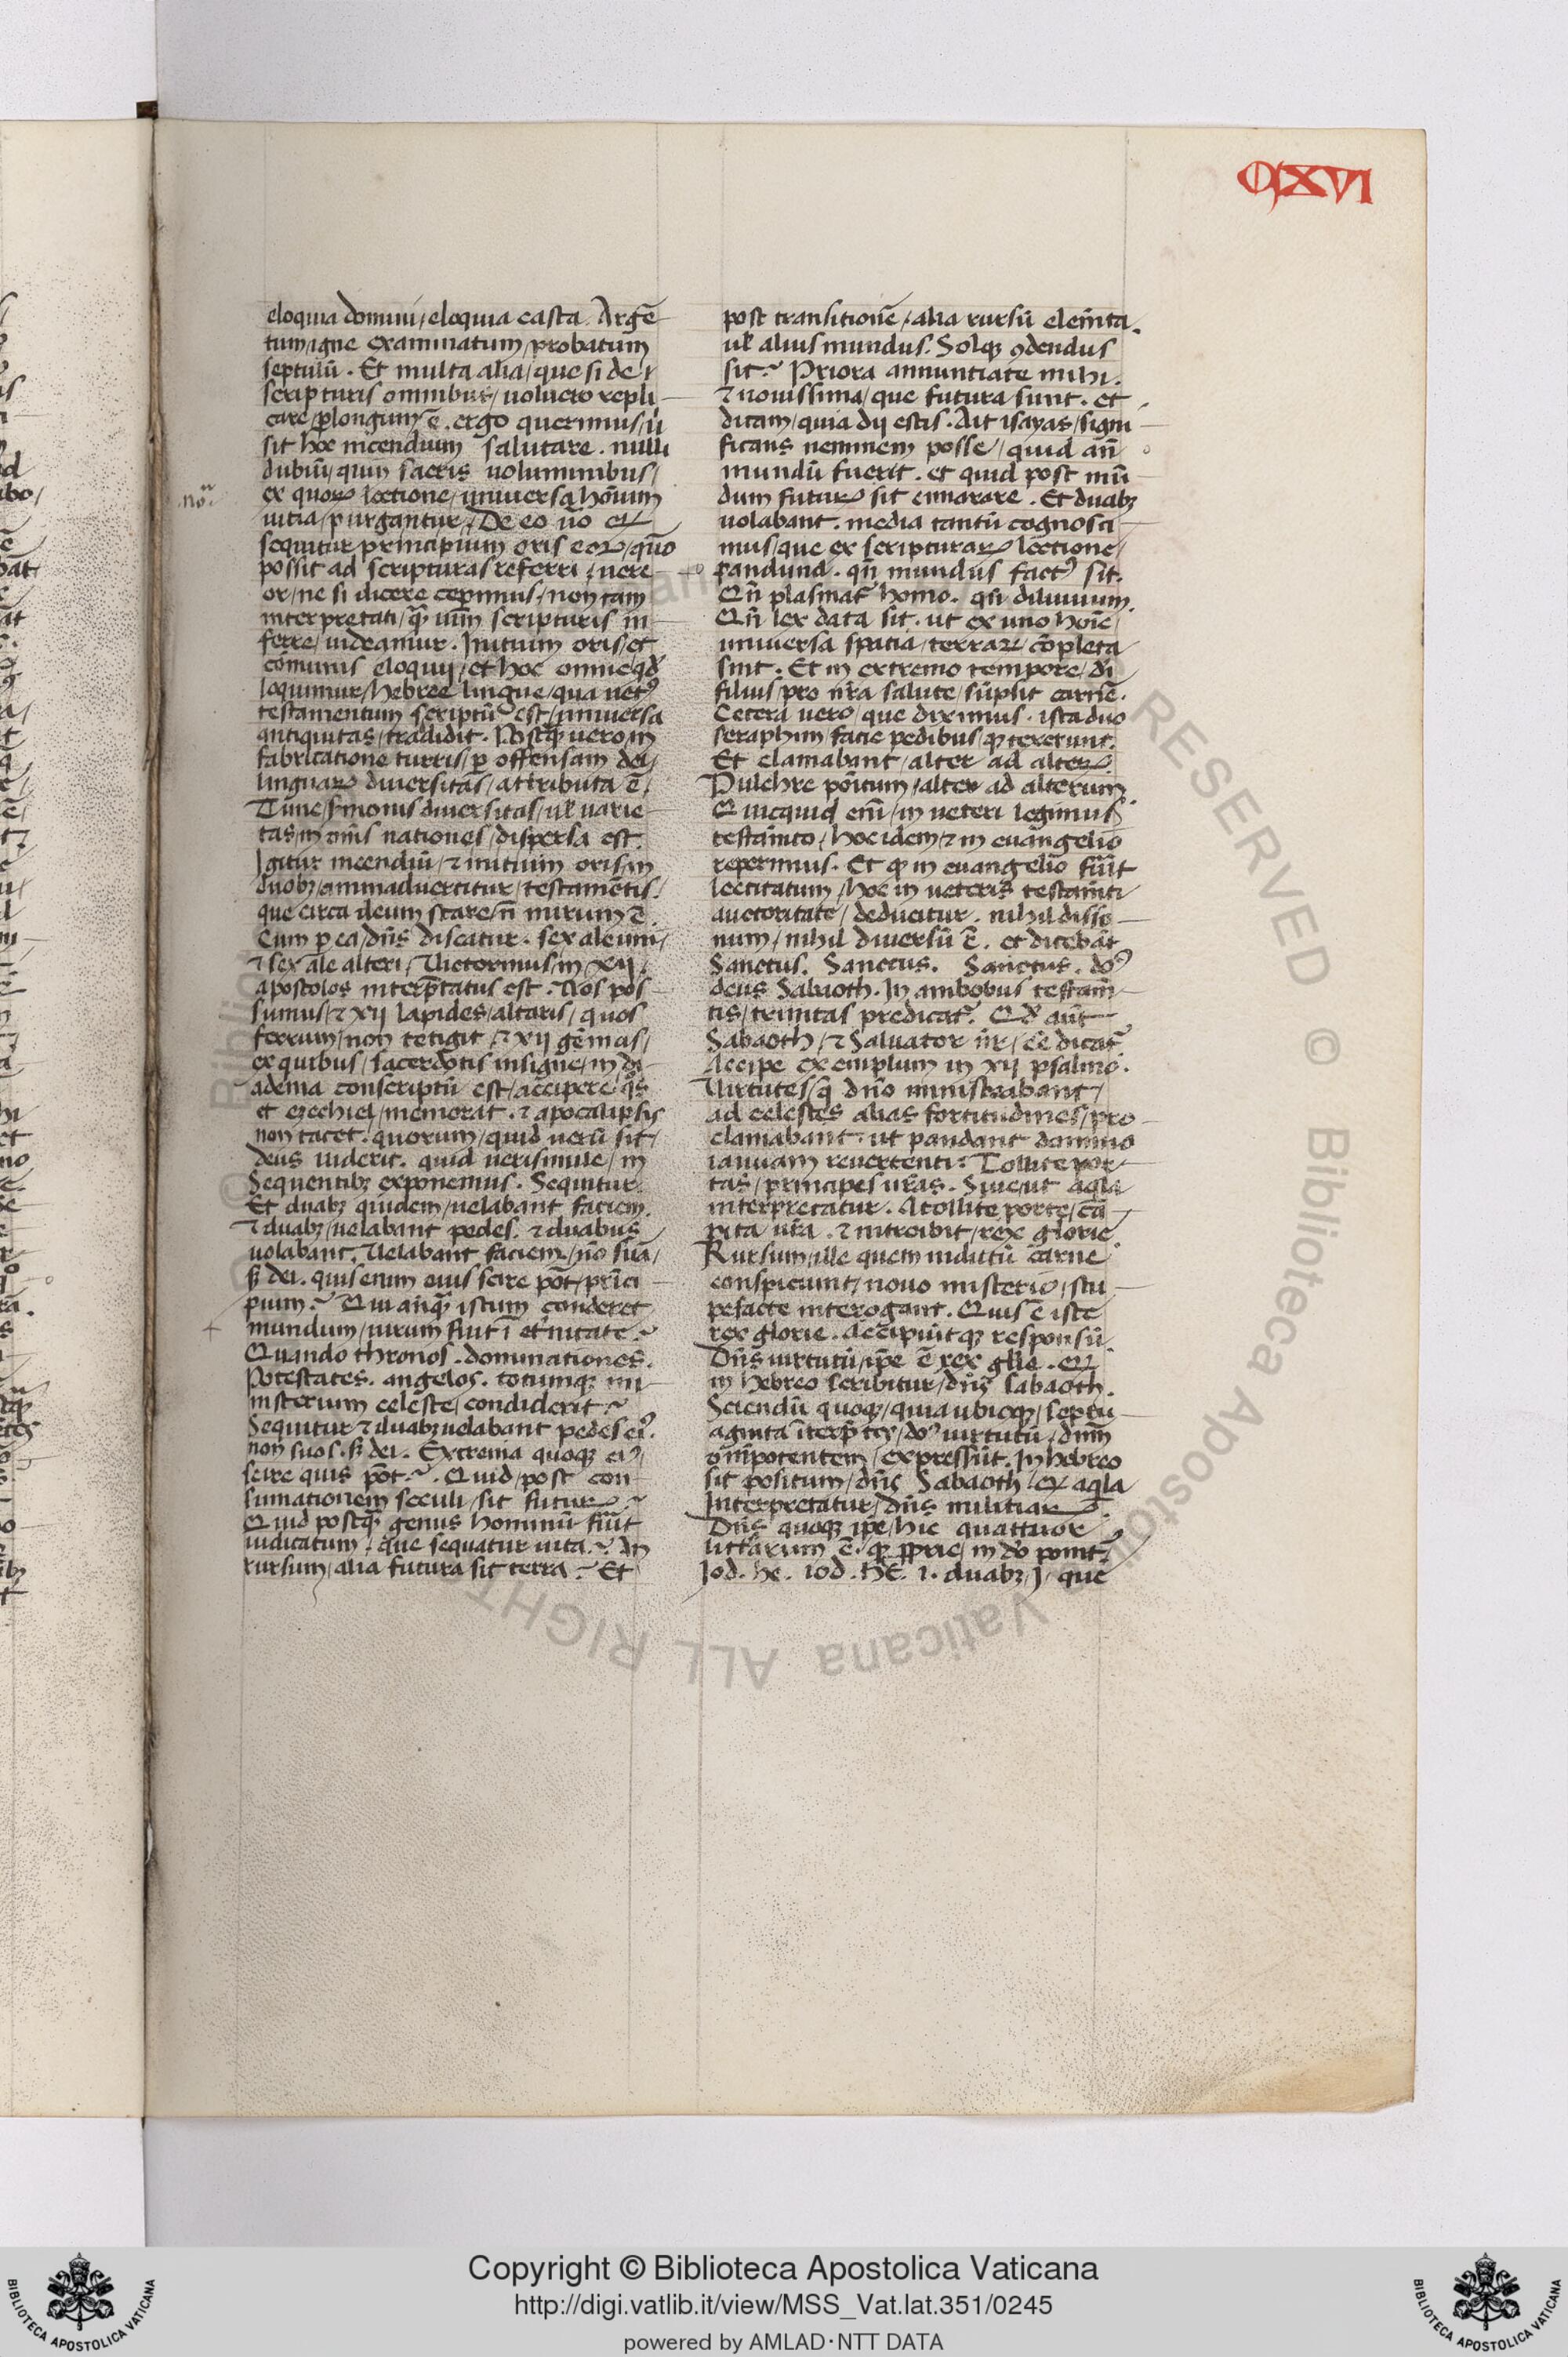 CXVI
eloquia domini/eloquia casta. Argē
tum/igne examinatum/probatum
septulū. Et multa alia/que si de
scripturis omnibus/voluero repli
care/plongum ē. ergo querimus/u
sit hoc incendium salutare. nulli
dubiū/quin sacris voluminibus/
ex quoꝝ lectione/universa hoīum
vitia/purgantur. De eo v̄o qꝫ
sequitur principium oris eoꝝ/quō
possit ad scripturas referri/vere
or/ne si dicere ceperimus/non tam
interpretari/q̄ vim scripturis in
ferre/videamur. Initium oris/et
cōmunis eloquii/et hoc omne qd̄
loquimur/hebree lingue/qua vetꝰ
testamentum scriptū est/universa
antiquitas/tradidit. Postq̄ vero/in
fabricatione turris/p offensam dei/
linguaꝝ diversitas/attributa ē.
Tunc/s̄monis diversitas/vl̄ varie
tas/in om̄s nationes/dispersa est.
Igitur incendiū/⁊ initium oris/in
duobꝫ/animadvertitur/testamētis.
que circa deum stare/n̄ mirum ē
Cum p ea/dn̄s discatur. sex ale uni/
⁊ sex ale alteri/Victorinus/in xii
apostolos interp̄tatus est. Nos pos
sumus/⁊ xii lapides/altaris/quos
ferrum/non tetigit/⁊ xii gēmas/
ex quibus/sacerdotis insigne/in di
adema conscriptū est/accipere/qͦs
et ezechiel/memorat. ⁊ apocalipsis
non tacet. quorum/quid verū sit/
deus viderit. quid verisimile/in
Sequentibꝫ exponemus. Sequitur
Et duabꝫ quidem/velabant faciem.
⁊ duabꝫ/velabant pedes. ⁊ duabus
volabant. Velabant faciem/nō suā/
sꝫ dei. quis enim eius scire pōt/prīci
pium? Qui anq̄ istum conderet
mundum/rerum fuit ī et̄nitate?
Quando thronos. dominationes.
Potestates. angelos. totumqꝫ mi
nisterium celeste/condiderit?
Sequitur ⁊ duabꝫ velabant pedes eiꝰ.
non suos. sꝫ dei. Extrema quoqꝫ eiꝰ/
scire quis pōt? Quid/post con
sumationem seculi/sit futuꝝ?
Quid postq̄ genus hominū fūit
iudicatum/que sequatur vita? An
rursum/alia futura sit terra? Et
post transitionē/alia rursū elemīta.
vl̄ alius mundus. Solqꝫ ꝯdendus
sit? Priora annuntiate mihi.
⁊ novissima/que futura sunt. et
dicam/quia dii estis. Ait isayas/signi
ficans neminem posse/quid an̄
mundū fuerit. et quid post mū
dum futuꝝ sit enarrare. Et duabꝫ
volabant. media tantū cognosci
mus/que ex scripturaꝝ lectione/
pandunt̄. qn̄ mundus factꝰ sit.
Qn̄ plasmat̄ homo. qn̄ diluvium.
Qn̄ lex data sit. ut ex uno hoīe/
universa spatia/terraꝝ/cōpleta
sint. Et in extremo tempore/di
filius/pro nr̄a salute/sūpsit carnē.
Cetera vero/que diximus. ista duo
seraphim/facie pedibus/qꝫ texerunt.
Et clamabant/alter ad alteꝝ.
Pulchre pōitum/alter ad alterum.
Quicquid enī/in veteri legimus
testamīto/hoc idem/⁊ in euāngelio
reperimus. Et qd̄ in euangelio fūit
lectitatum/hoc in veteris testamīti
auctoritate/deducitur. nihil disso
num/nihil diversū ē. et dicebāt
Sanctus. Sanctus. Sanctus. dōꝰ
deus Sabaoth. In ambobus testam̄
tis/trinitas predicat̄. Qd̄ aūt
Sabaoth/⁊ Salvator nr̄/ēē dicat̄
Accipe exemplum in xii psalmo.
Virtutes/q̄ dn̄o ministrabant/
ad celestes alias fortitudines/pro
clamabant. ut pandant domino
ianuam revertenti. Tollite por
tas/principes vr̄as. Sive ut aqla
interpretatur. Attollite porte/ca
pita vr̄a. ⁊ introibit/rex glorie.
Rursum/ille quem indutū carne
conspiciunt/novo misterio/stu
pefacte interogant. Quis ē iste
rex glorie. Accipiūtqꝫ responsū.
Dn̄s virtutū/ip̄e ē rex gl̄ie. qꝫ
in hebreo scribitur/dn̄s sabaoth.
Sciendū quoqꝫ/quia ubicqꝫ/septu
aginta īterp̄tes/dōꝰ virtutū/dn̄m
om̄ipotentem/expressūt. In hebreo
sit positum/dn̄s Sabaoth/qꝫ aqla
Interpretatur/dn̄s militiaꝝ.
Dn̄s quoqꝫ ip̄e/hic quattuor
litt̄arum ē. qꝫ pprie/in dō ponit̄.
Iod. he. iod. he. i. duabꝫ/J/que
Copyright © Biblioteca Apostolica Vaticana
http://digi.vatlib.it/view/MSS_Vat.lat.351/0245
powered by AMLAD·NTT DATA